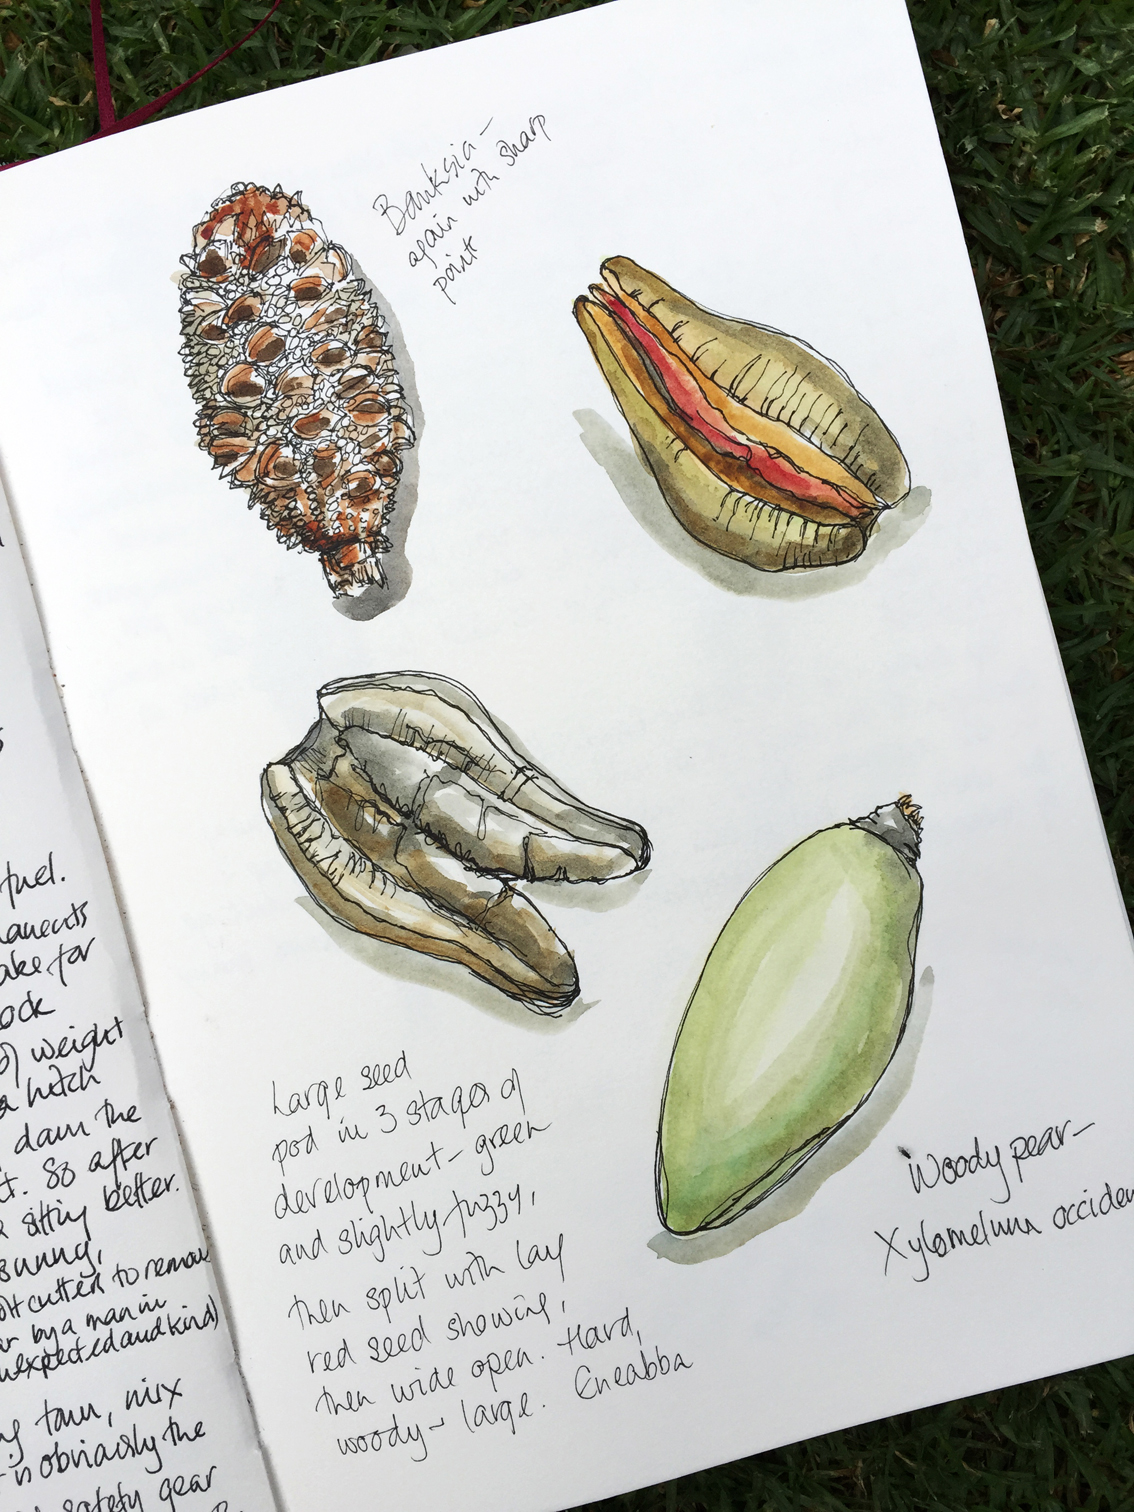 Banksia –
again with sharp
point
Large seed
pod in 3 stages of
development – green
and slightly fuzzy,
then split with
red seed showing,
then wide open. Hard,
woody – large. Eneabba
Woody pear –
Xylomelum occiden
fuel.
ake for
ock
of weight
a hitch
dawn the
t. 88 after
sitting better.
sunny,
cutters to remove
by a man in
nexpected and kind)
town, mix
is obviously the
safety gear